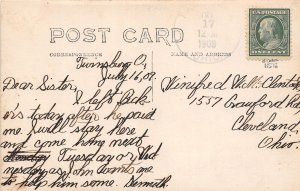 POST CARD
CORRESPONDENCE
NAME AND ADDRESS
17
1909
U.S. POSTAGE
ONE CENT
Twinsburg O,
July 16, 09.
Dear Sister,
I left Jack
n's today after he paid
me. Will stay here
and come home next
Tuesday or Wed
nesday as John wants me
to help him some. Kenneth.
Winifred
1557 Crawford Rd
Cleveland,
Ohio.